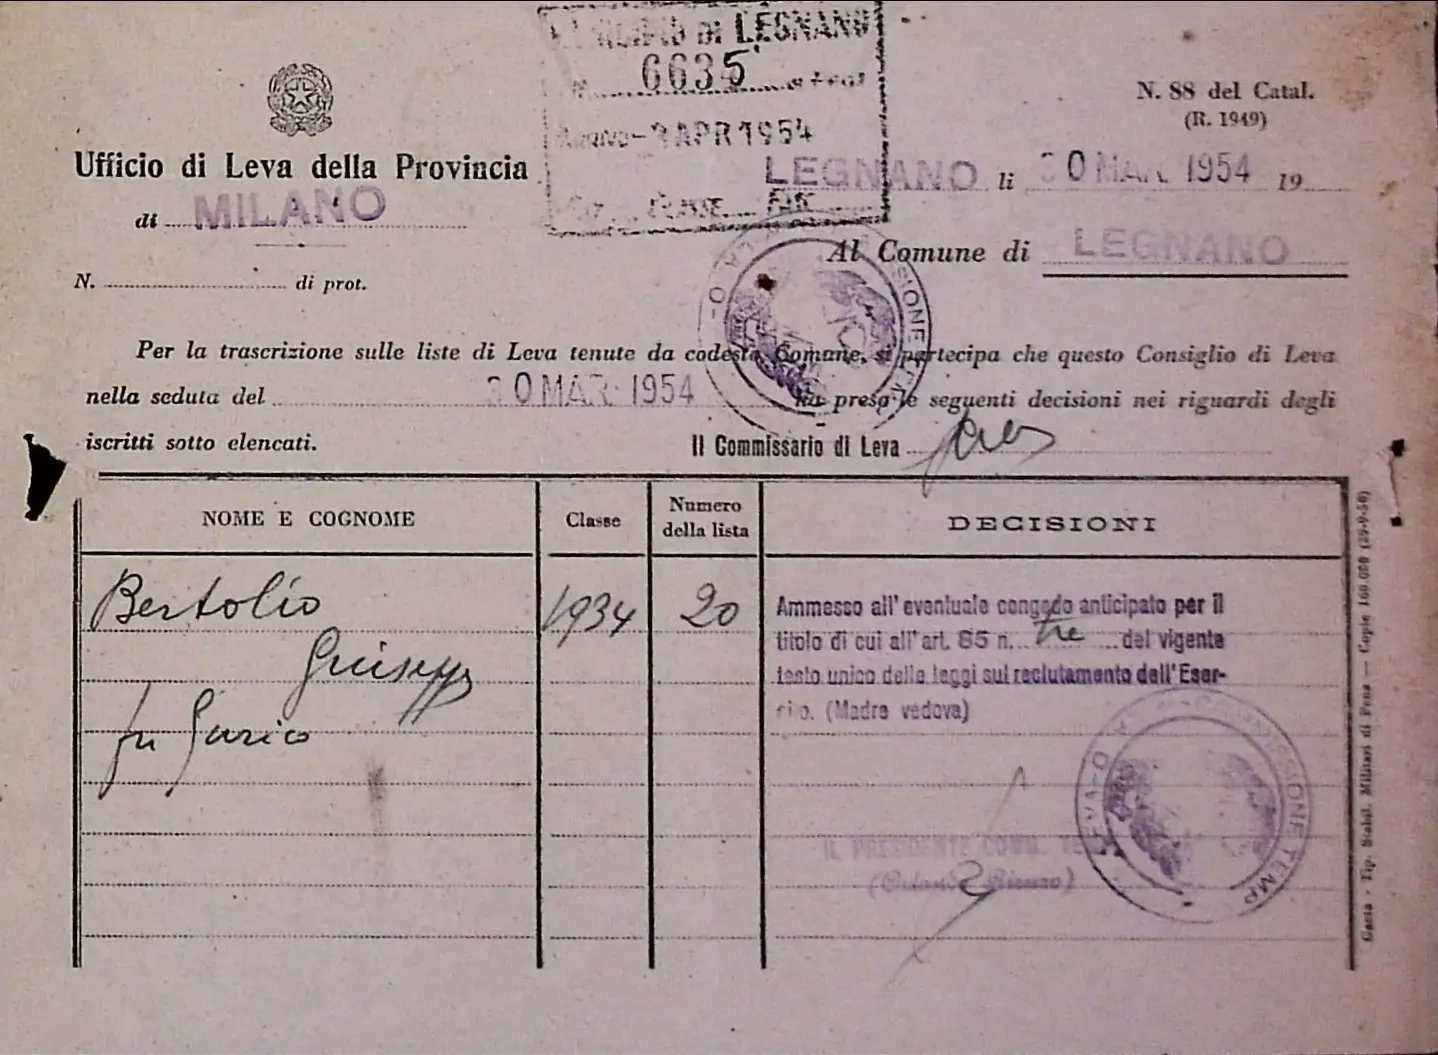 MUNICIPIO DI LEGNANO
N. 6635
Arrivo - 3 APR 1954
CLASSE FASC
N. 88 del Catal.
(R. 1949)
Ufficio di Leva della Provincia
di MILANO
LEGNANO li 30 MAR. 1954 19
Al Comune di LEGNANO
N. di prot.
Per la trascrizione sulle liste di Leva tenute da codesto Comune, si partecipa che questo Consiglio di Leva
nella seduta del 30 MAR. 1954 ha preso le seguenti decisioni nei riguardi degli
iscritti sotto elencati.
Il Commissario di Leva
NOME E COGNOME Classe Numero della lista DECISIONI
Bertolio 1934 20
Giuseppe
fu
Ammesso all'eventuale congedo anticipato per il
titolo di cui all'art. 85 n. tre del vigente
testo unico delle leggi sul reclutamento dell'Eser-
cito. (Madre vedova)
IL PRESIDENTE COMM.
LEVA - COMMISSIONE TEMP
Gaeta - Tip. Stabil. Militari di Pena — Copie 160.000 (29-9-50)